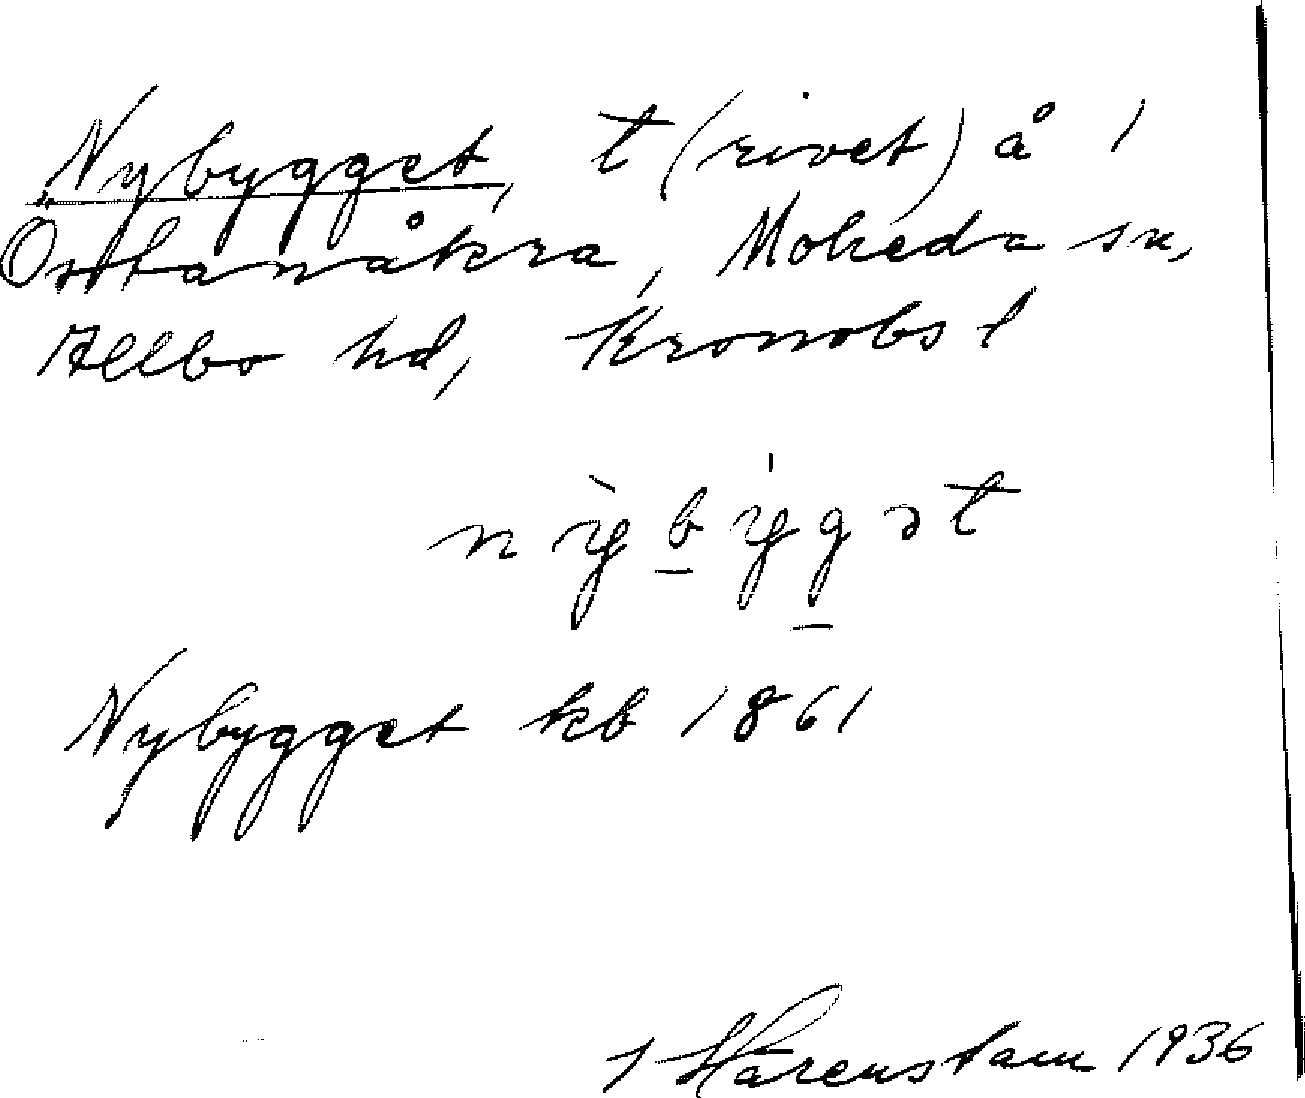 Nybygget, t (rivet) å 1
Östbanåkra, Moheda sn,
Allbo hd, Kronobs l
nỳb̲ýg̲ət
Nybygget kb 1861
J Hårenstam 1936